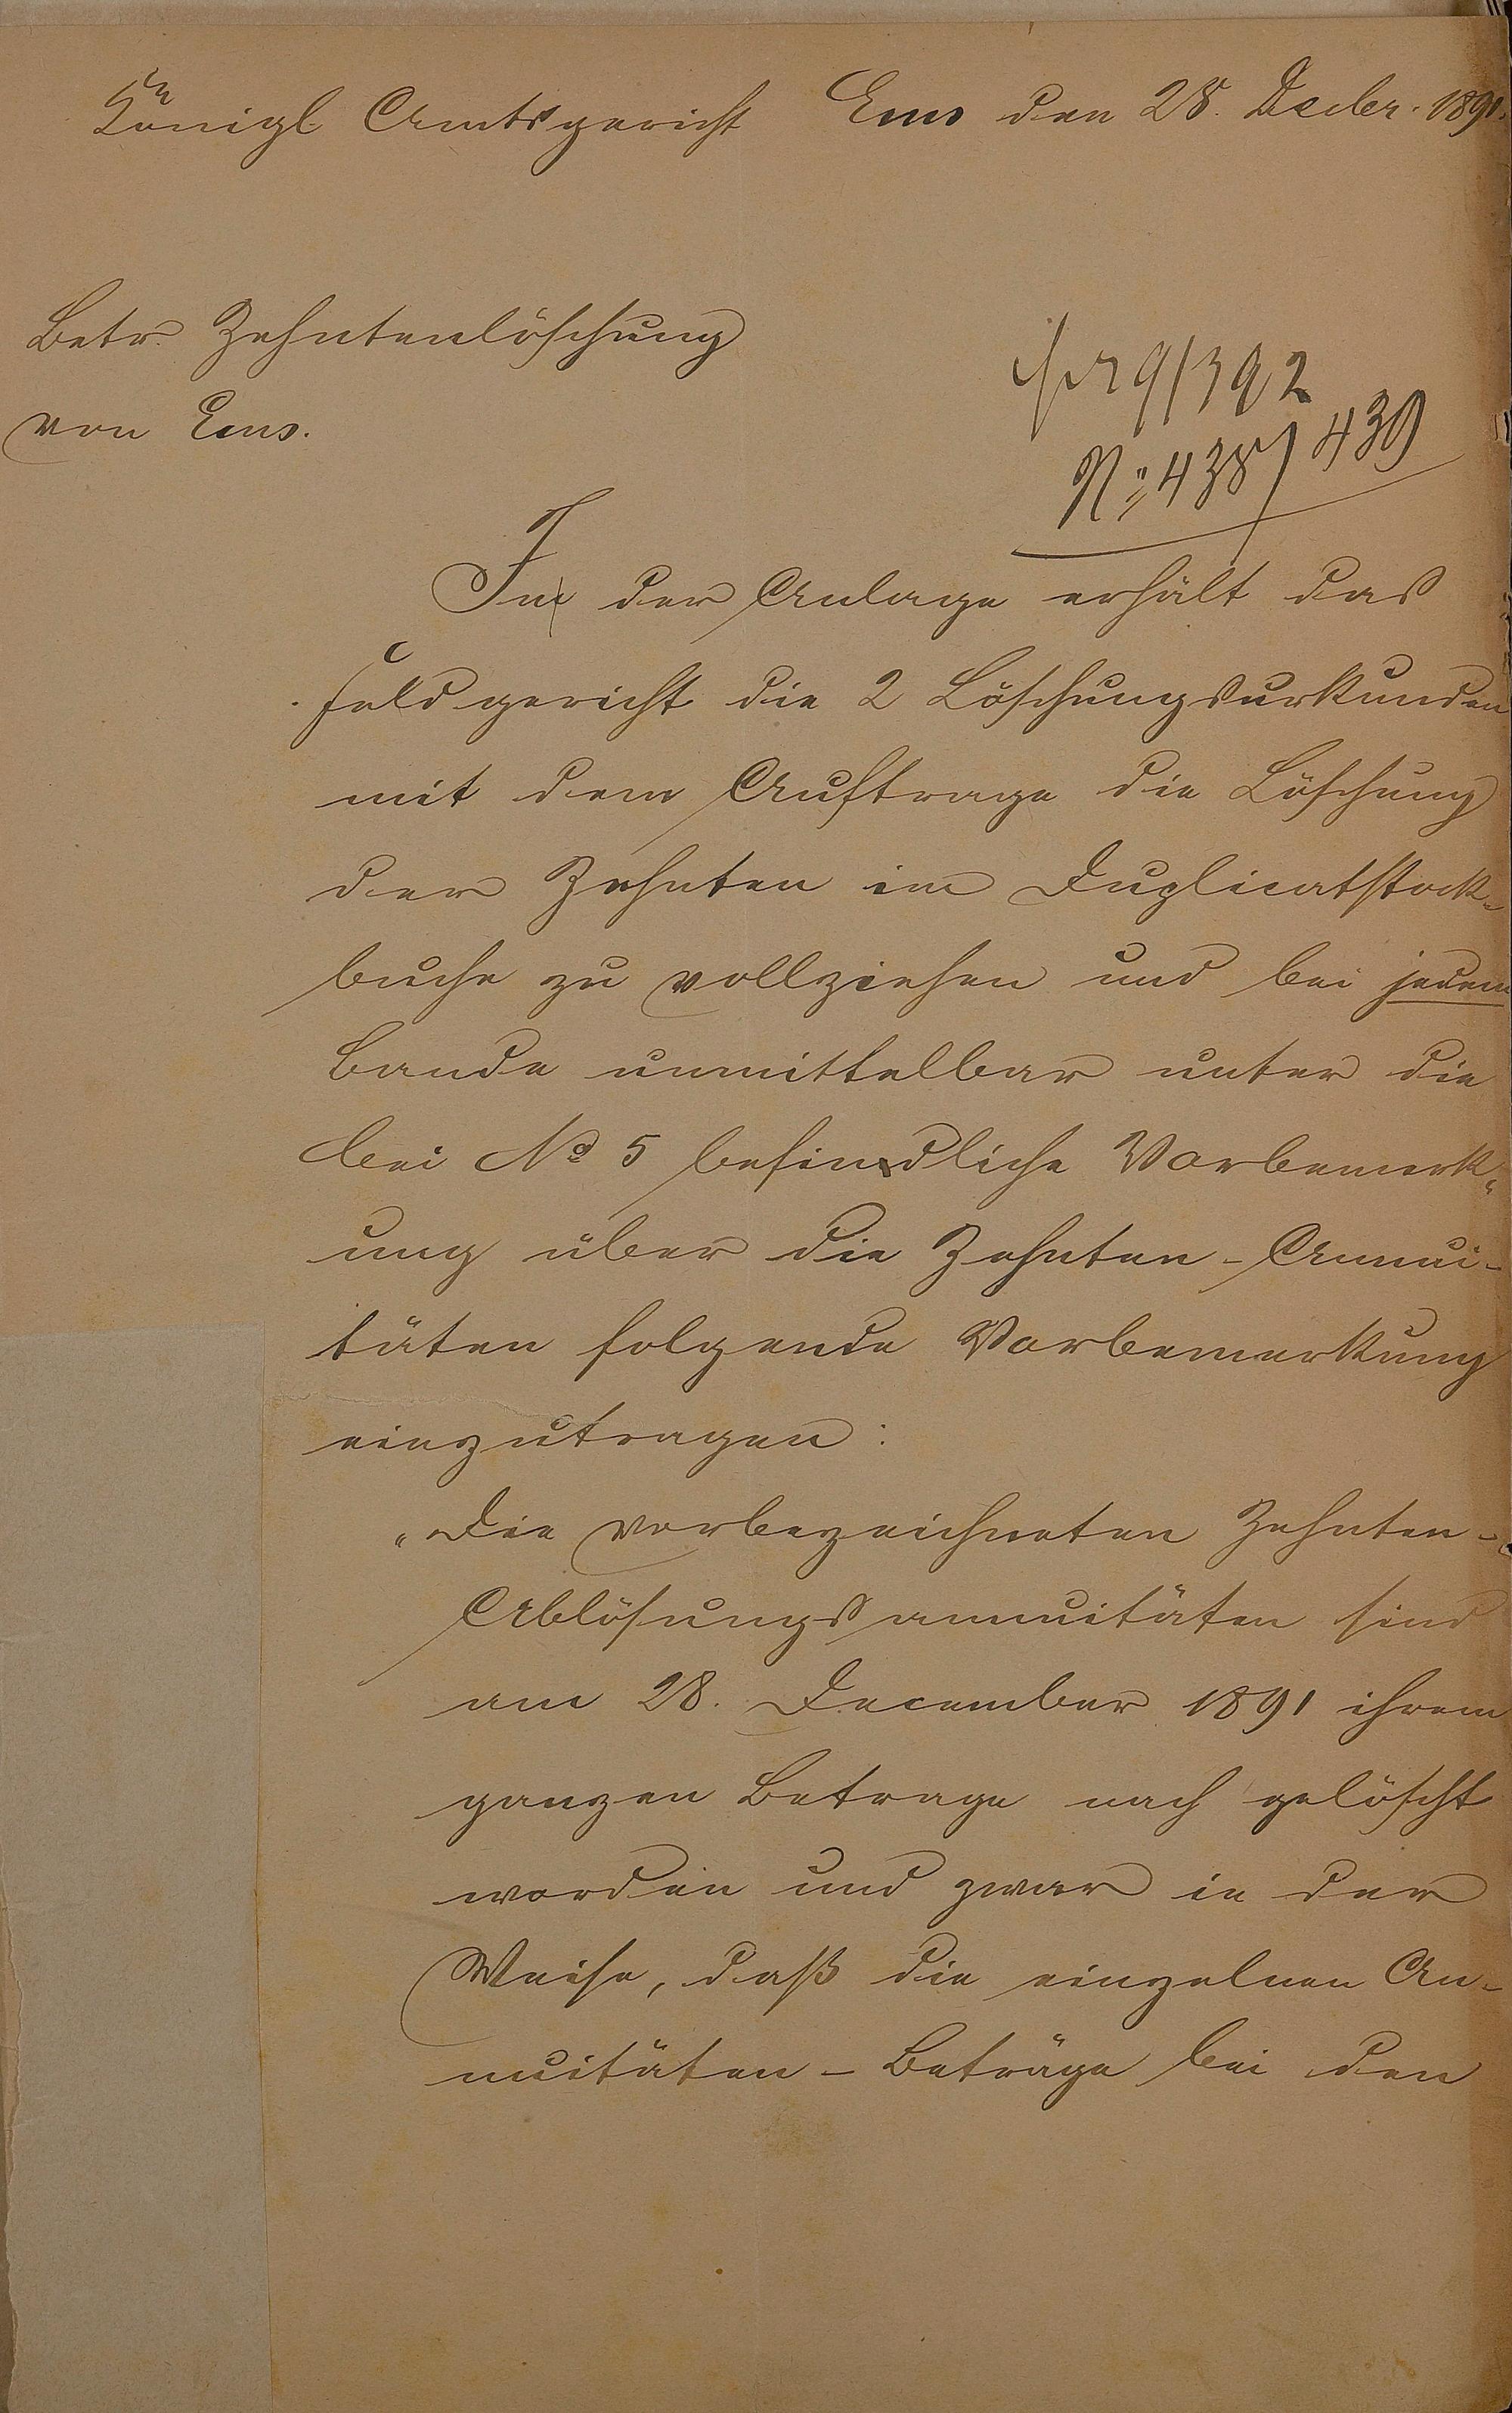 Königl Amtsgericht Ems den 28. Decbr. 1891.
Betr. Zehntenlöschung
von Ems.
9/3 92
No 438/439
In der Anlage erhält das
Feldgericht die 2 Löschungsurkunden
mit dem Auftrage die Löschung
der Zehnten im Duplicatstock-
buche zu vollziehen und bei jedem
Bande unmittelbar unter die
bei No 5 befindliche Vorbemerk-
ung über die Zehnten-Annui-
täten folgende Vorbemerkung
einzutragen:
„Die vorbezeichneten Zehnten-
Ablösungsannuitäten sind
am 28. December 1891 ihrem
ganzen Betrage nach gelöscht
worden und zwar in der
Weise, daß die einzelnen An-
nuitäten-Beträge bei den